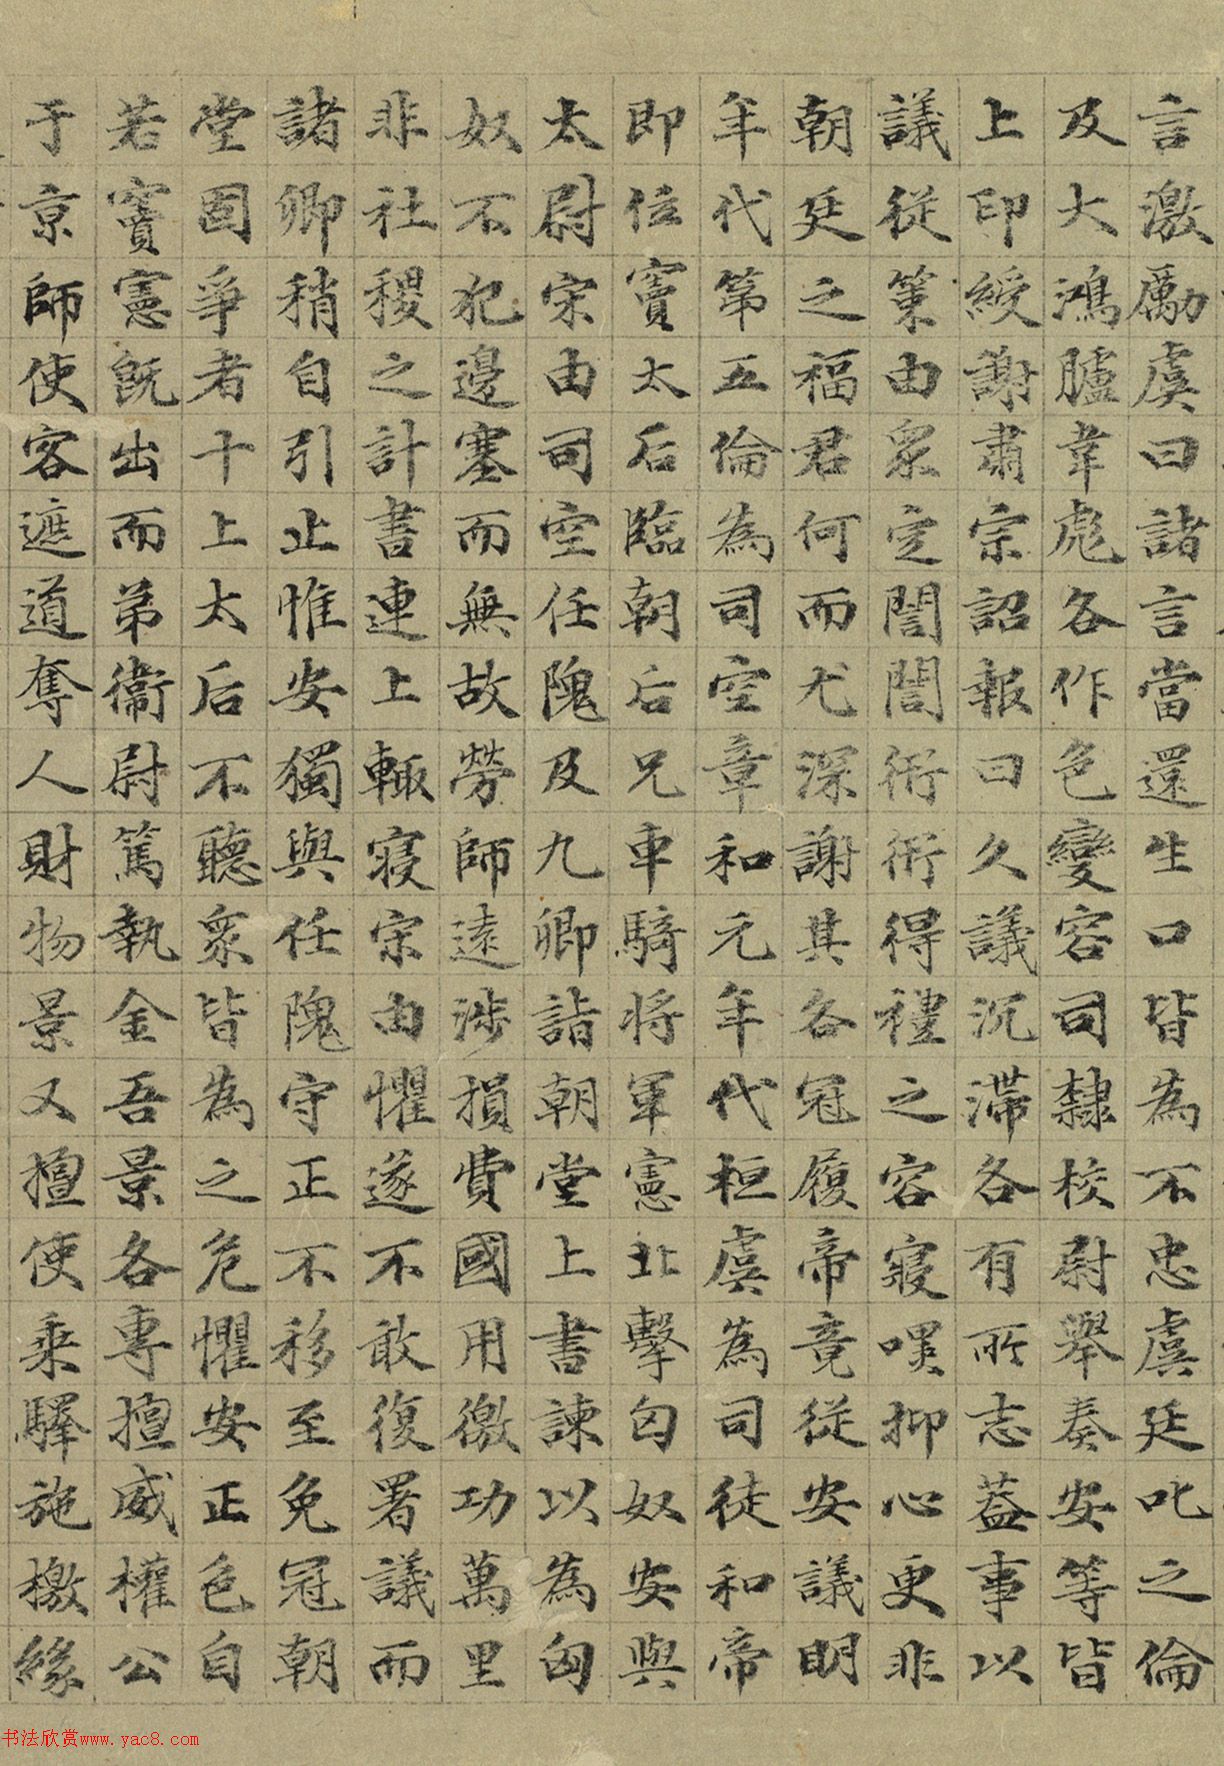 言激厲虞曰諸言當還生口皆為不忠虞廷叱之倫
及大鴻臚韋彪各作色變容司隸校尉舉奏安等皆
上印綬謝肅宗詔報曰久議沉滯各有所志蓋事以
議從策由眾定誾誾衎衎得禮之容寢嘿抑心更非
朝廷之福君何而尤深謝其各冠履帝竟從安議明
年代第五倫為司空章和元年代桓虞為司徒和帝
即位竇太后臨朝后兄車騎將軍憲北擊匈奴安與
太尉宋由司空任隗及九卿詣朝堂上書諫以為匈
奴不犯邊塞而無故勞師遠涉損費國用徼功萬里
非社稷之計書連上輒寢宋由懼遂不敢復署議而
諸卿稍自引止惟安獨與任隗守正不移至免冠朝
堂固爭者十上太后不聽眾皆為之危懼安正色自
若竇憲既出而弟衛尉篤執金吾景各專擅威權公
于京師使客遮道奪人財物景又擅使乘驛施檄緣
书法欣赏www.yac8.com